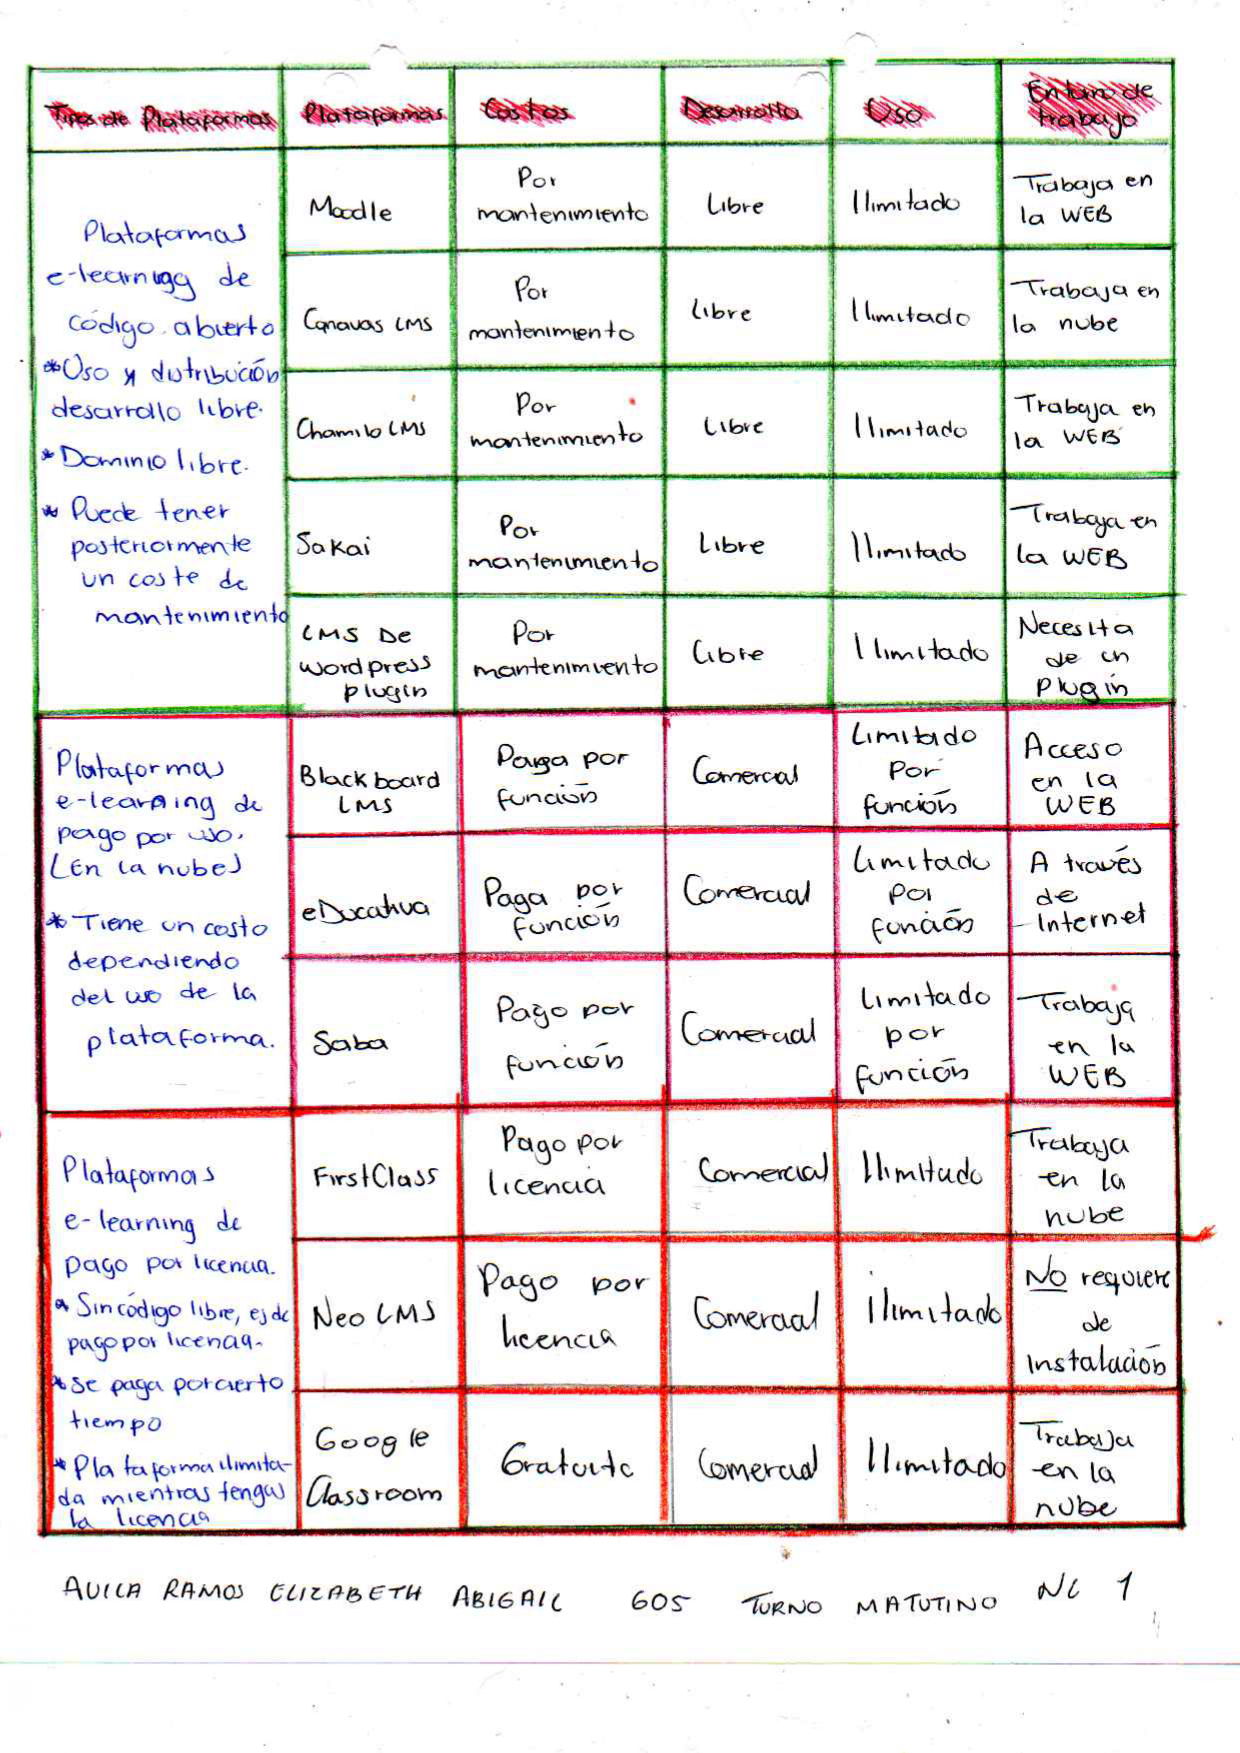 Tipos de Plataformas
Plataformas
Costos
Desarrollo
Uso
Entorno de
trabajo
Plataformas
e-learnigg de
código abierto
*Uso y distribución
desarrollo libre.
* Dominio libre.
* Puede tener
posteriormente
un coste de
mantenimiento
Moodle
Por
mantenimiento
Libre
Ilimitado
Trabaja en
la WEB
Canavas LMS
Por
mantenimiento
Libre
Ilimitado
Trabaja en
la nube
Chamilo LMS
Por
mantenimiento
Libre
Ilimitado
Trabaja en
la WEB
Sakai
Por
mantenimiento
Libre
Ilimitado
Trabaja en
la WEB
LMS De
Wordpress
plugin
Por
mantenimiento
Libre
Ilimitado
Necesita
de un
plugin
Plataformas
e-learning de
pago por uso.
(En la nube)
* Tiene un costo
dependiendo
del uso de la
plataforma.
Blackboard
LMS
Paga por
función
Comercial
Limitado
Por
función
Acceso
en la
WEB
eDucativa
Paga por
función
Comercial
Limitado
Por
función
A través
de
Internet
Saba
Pago por
función
Comercial
Limitado
por
función
Trabaja
en la
WEB
Plataformas
e-learning de
pago por licencia.
* Sin código libre, es de
pago por licencia.
* Se paga por cierto
tiempo
* Plataforma ilimita-
da mientras tengas
la licencia
FirstClass
Pago por
licencia
Comercial
Ilimitado
Trabaja
en la
nube
Neo LMS
Pago por
licencia
Comercial
ilimitado
No requiere
de
instalación
Google
Classroom
Gratuito
Comercial
Ilimitado
Trabaja
en la
nube
AVILA RAMOS ELIZABETH ABIGAIL 605 TURNO MATUTINO NL 1